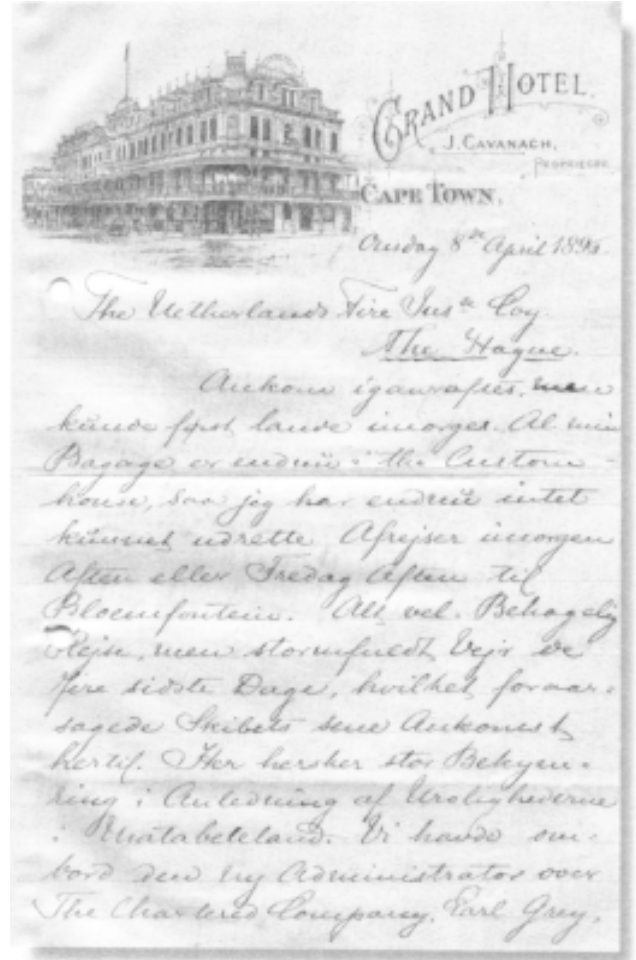 GRAND HOTEL.
J. CAVANACH,
PROPRIETOR
CAPE TOWN.
Onsdag 8de April 1896.
The Netherlands Fire Insce Coy.
The Hague.
Ankom igaaraftes, men
kunde først lande imorges. Al min
Bagage er endnu i the Custom-
house, saa jeg har endnu intet
kunnet udrette. Afrejser imorgen
Aften eller Fredag Aften til
Bloemfontein. Alt vel. Behagelig
Rejse, men stormfuldt Vejr de
fire sidste Dage, hvilket foraar-
sagede Skibets sene Ankomst
hertil. Her hersker stor Bekym-
ring i Anledning af Urolighederne
i Matabeleland. Vi havde om-
bord den ny Administrator over
The Chartered Company, Earl Grey,